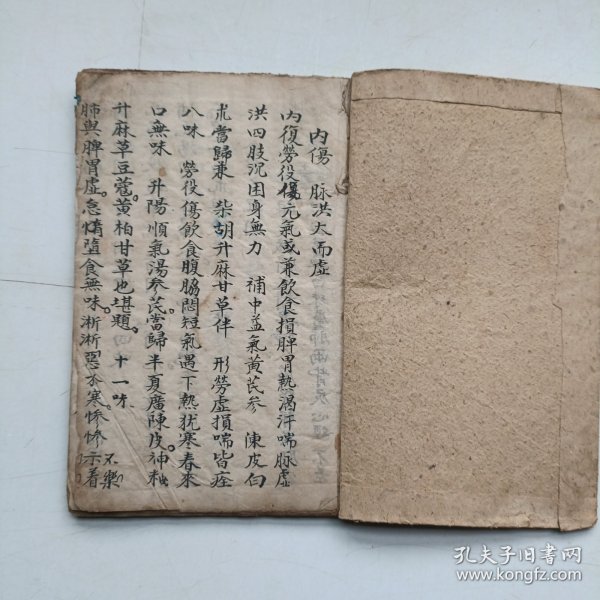 內傷 脉洪大而虛
內復勞役傷元氣或兼飲食損脾胃熱渴汗喘脉虛
洪四肢沉困身無力 補中益氣黃芪參 陳皮白
朮當歸兼 柴胡升麻甘草伴 形勞虛損喘皆痊
八味 勞役傷飲食腹脇悶短氣遇下熱犹寒春來
口無味 升陽順氣湯參芪當歸半夏廣陳皮神粬
升麻草豆蔻黃柏甘草也堪題 十一味
肺與脾胃虛怠惰墮食無味淅淅惡木寒慘慘不樂
孔夫子旧书网
www.kongfz.com